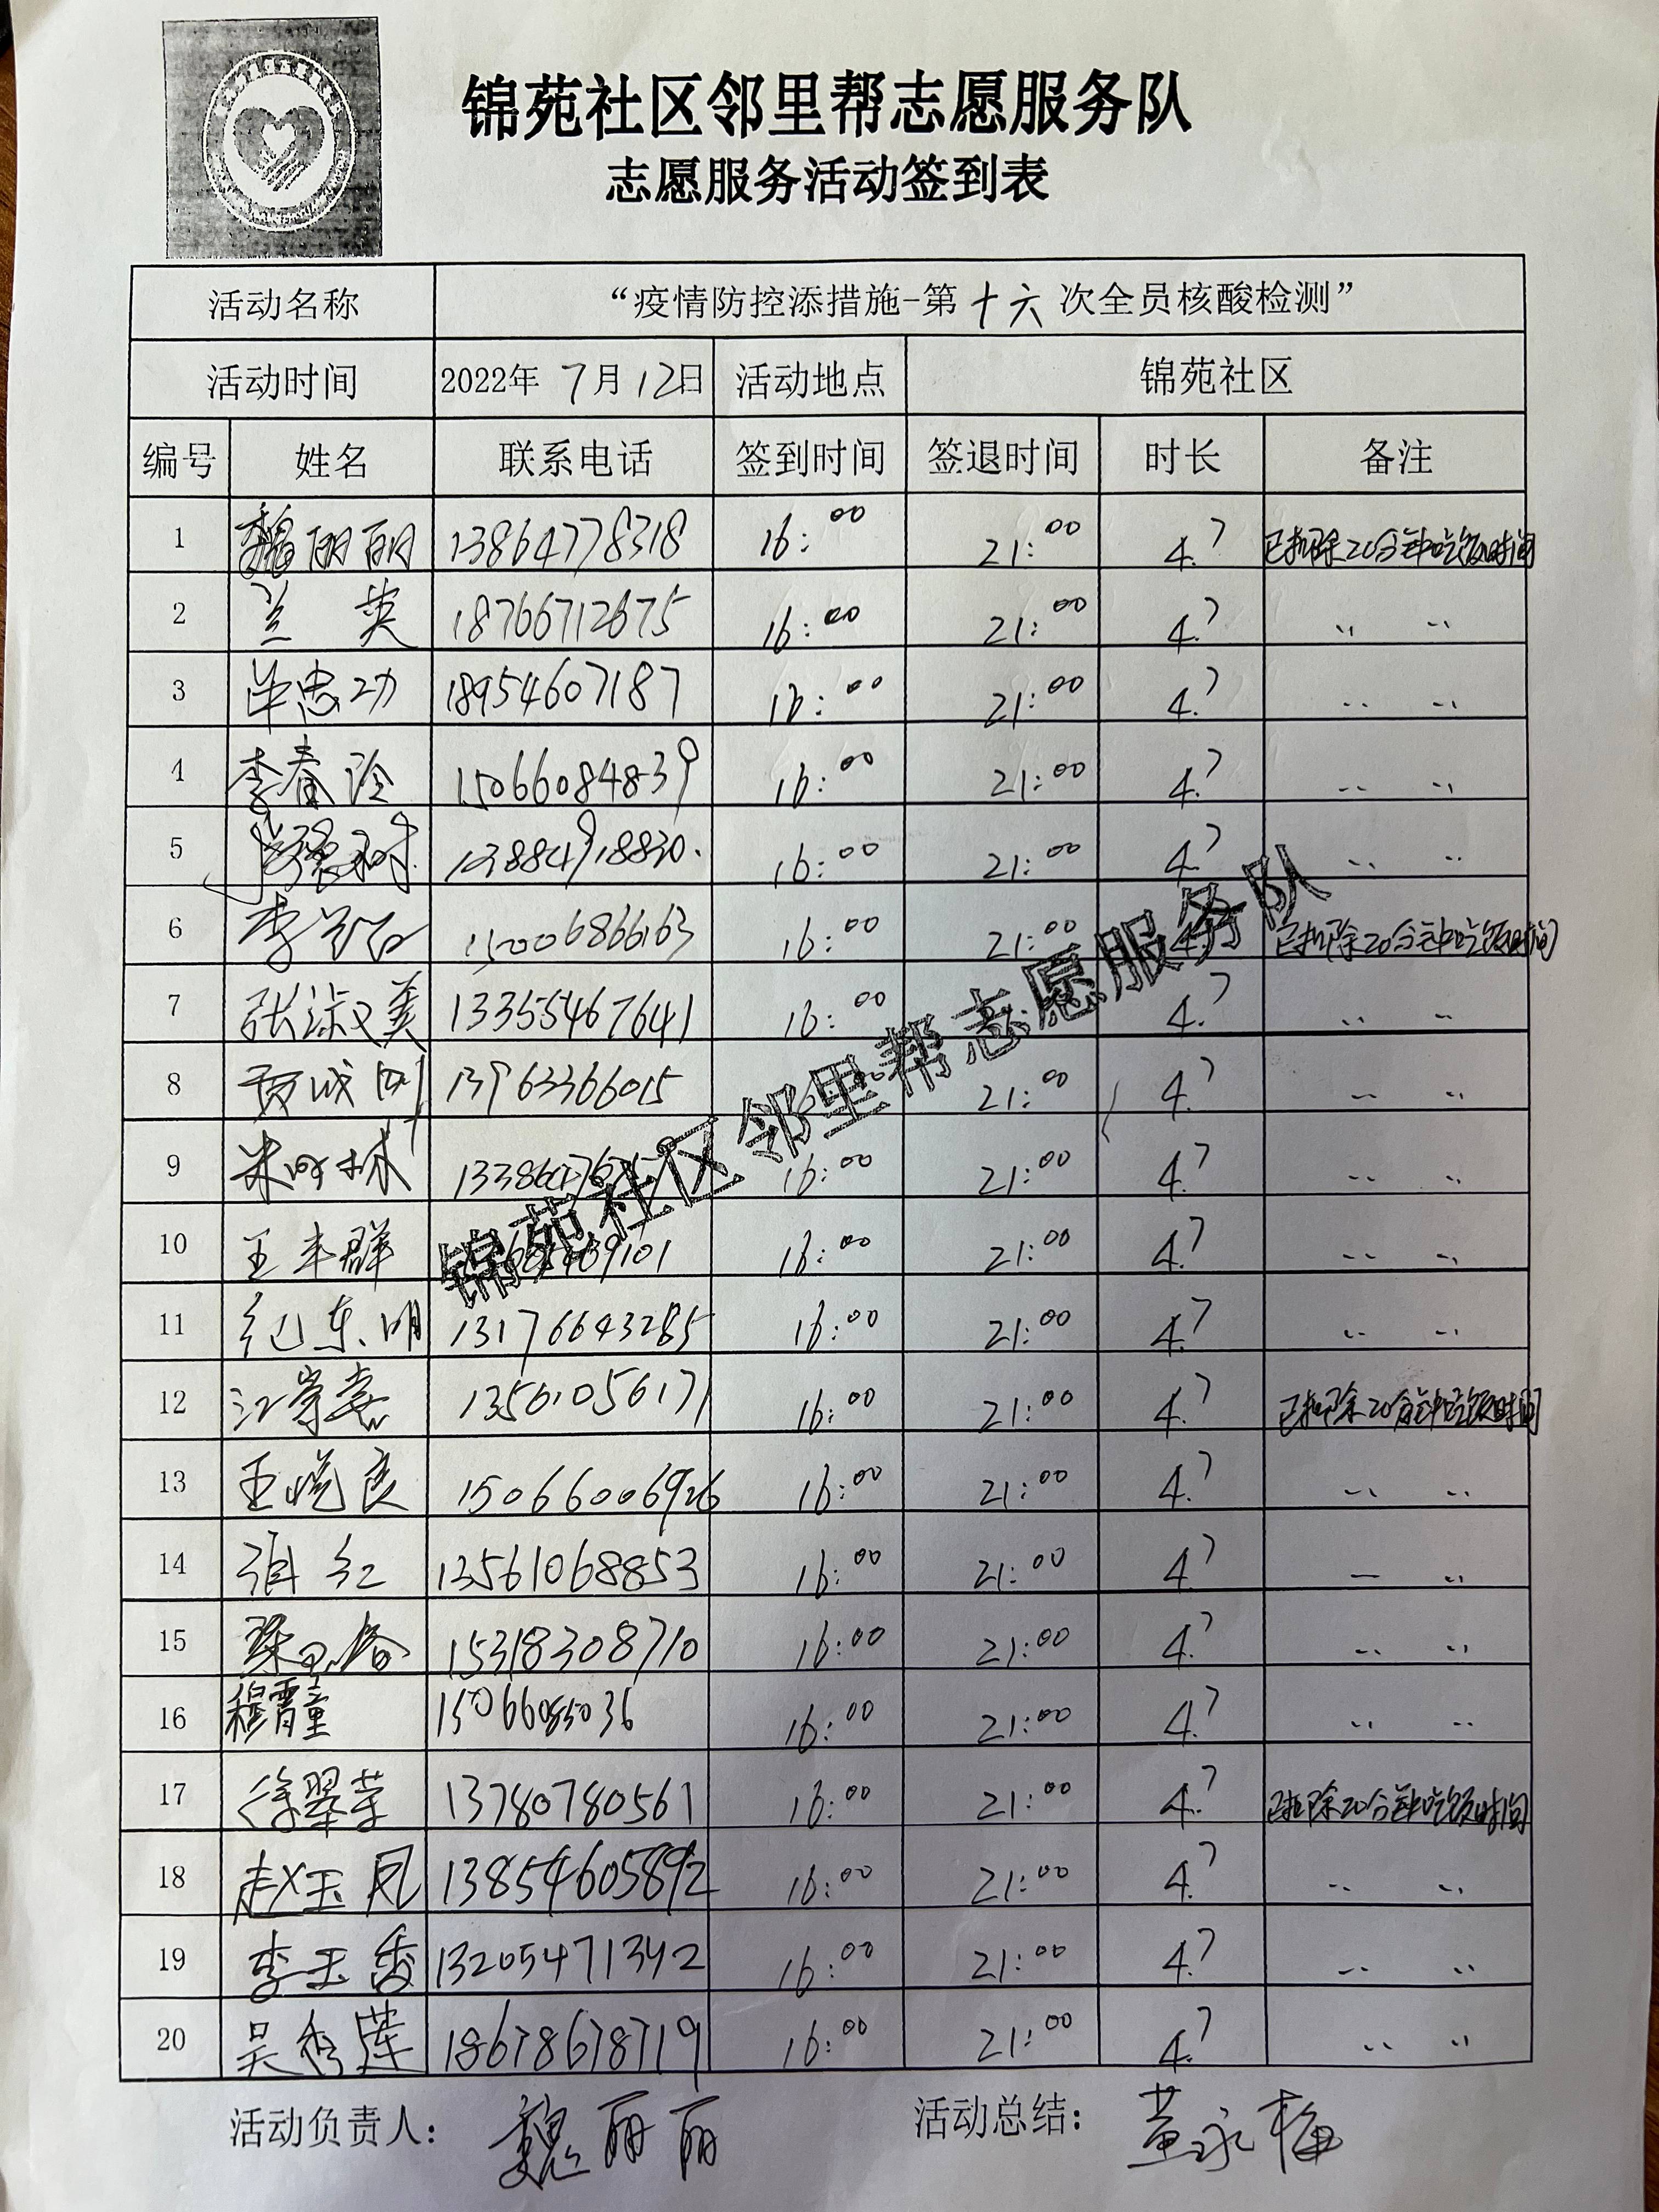 锦苑社区邻里帮志愿服务队
志愿服务活动签到表
活动名称 “疫情防控添措施-第十六次全员核酸检测”
活动时间 2022年7月12日 活动地点 锦苑社区
编号 姓名 联系电话 签到时间 签退时间 时长 备注
1 魏丽丽 13864778318 16:00 21:00 4.7 已扣除20分钟吃饭时间
2 兰英 18766712675 16:00 21:00 4.7 〃 〃
3 毕忠功 18954607187 16:00 21:00 4.7 〃 〃
4 李春玲 15066084839 16:00 21:00 4.7 〃 〃
5 16:00 21:00 4.7 〃 〃
6 15006866163 16:00 21:00 4.7 已扣除20分钟吃饭时间
7 张淑美 13355467641 16:00 4.7 〃 〃
8 贾成刚 13963366015 21:00 4.7 〃 〃
9 16:00 21:00 4.7 〃 〃
10 王丰群 16:00 21:00 4.7 〃 〃
11 纪东明 13176643285 16:00 21:00 4.7 〃 〃
12 13561056171 16:00 21:00 4.7 已扣除20分钟吃饭时间
13 王悦良 15066006926 16:00 21:00 4.7 〃 〃
14 红 13561068853 16:00 21:00 4.7 〃 〃
15 15318308710 16:00 21:00 4.7 〃 〃
16 穆霄童 15066085036 16:00 21:00 4.7 〃 〃
17 徐翠荣 13780780561 16:00 21:00 4.7 已扣除20分钟吃饭时间
18 赵玉凤 13854605892 16:00 21:00 4.7 〃 〃
19 李玉香 13205471342 16:00 21:00 4.7 〃 〃
20 吴秀莲 18678678719 16:00 21:00 4.7 〃 〃
锦苑社区邻里帮志愿服务队
活动负责人：魏丽丽 活动总结：黄永梅